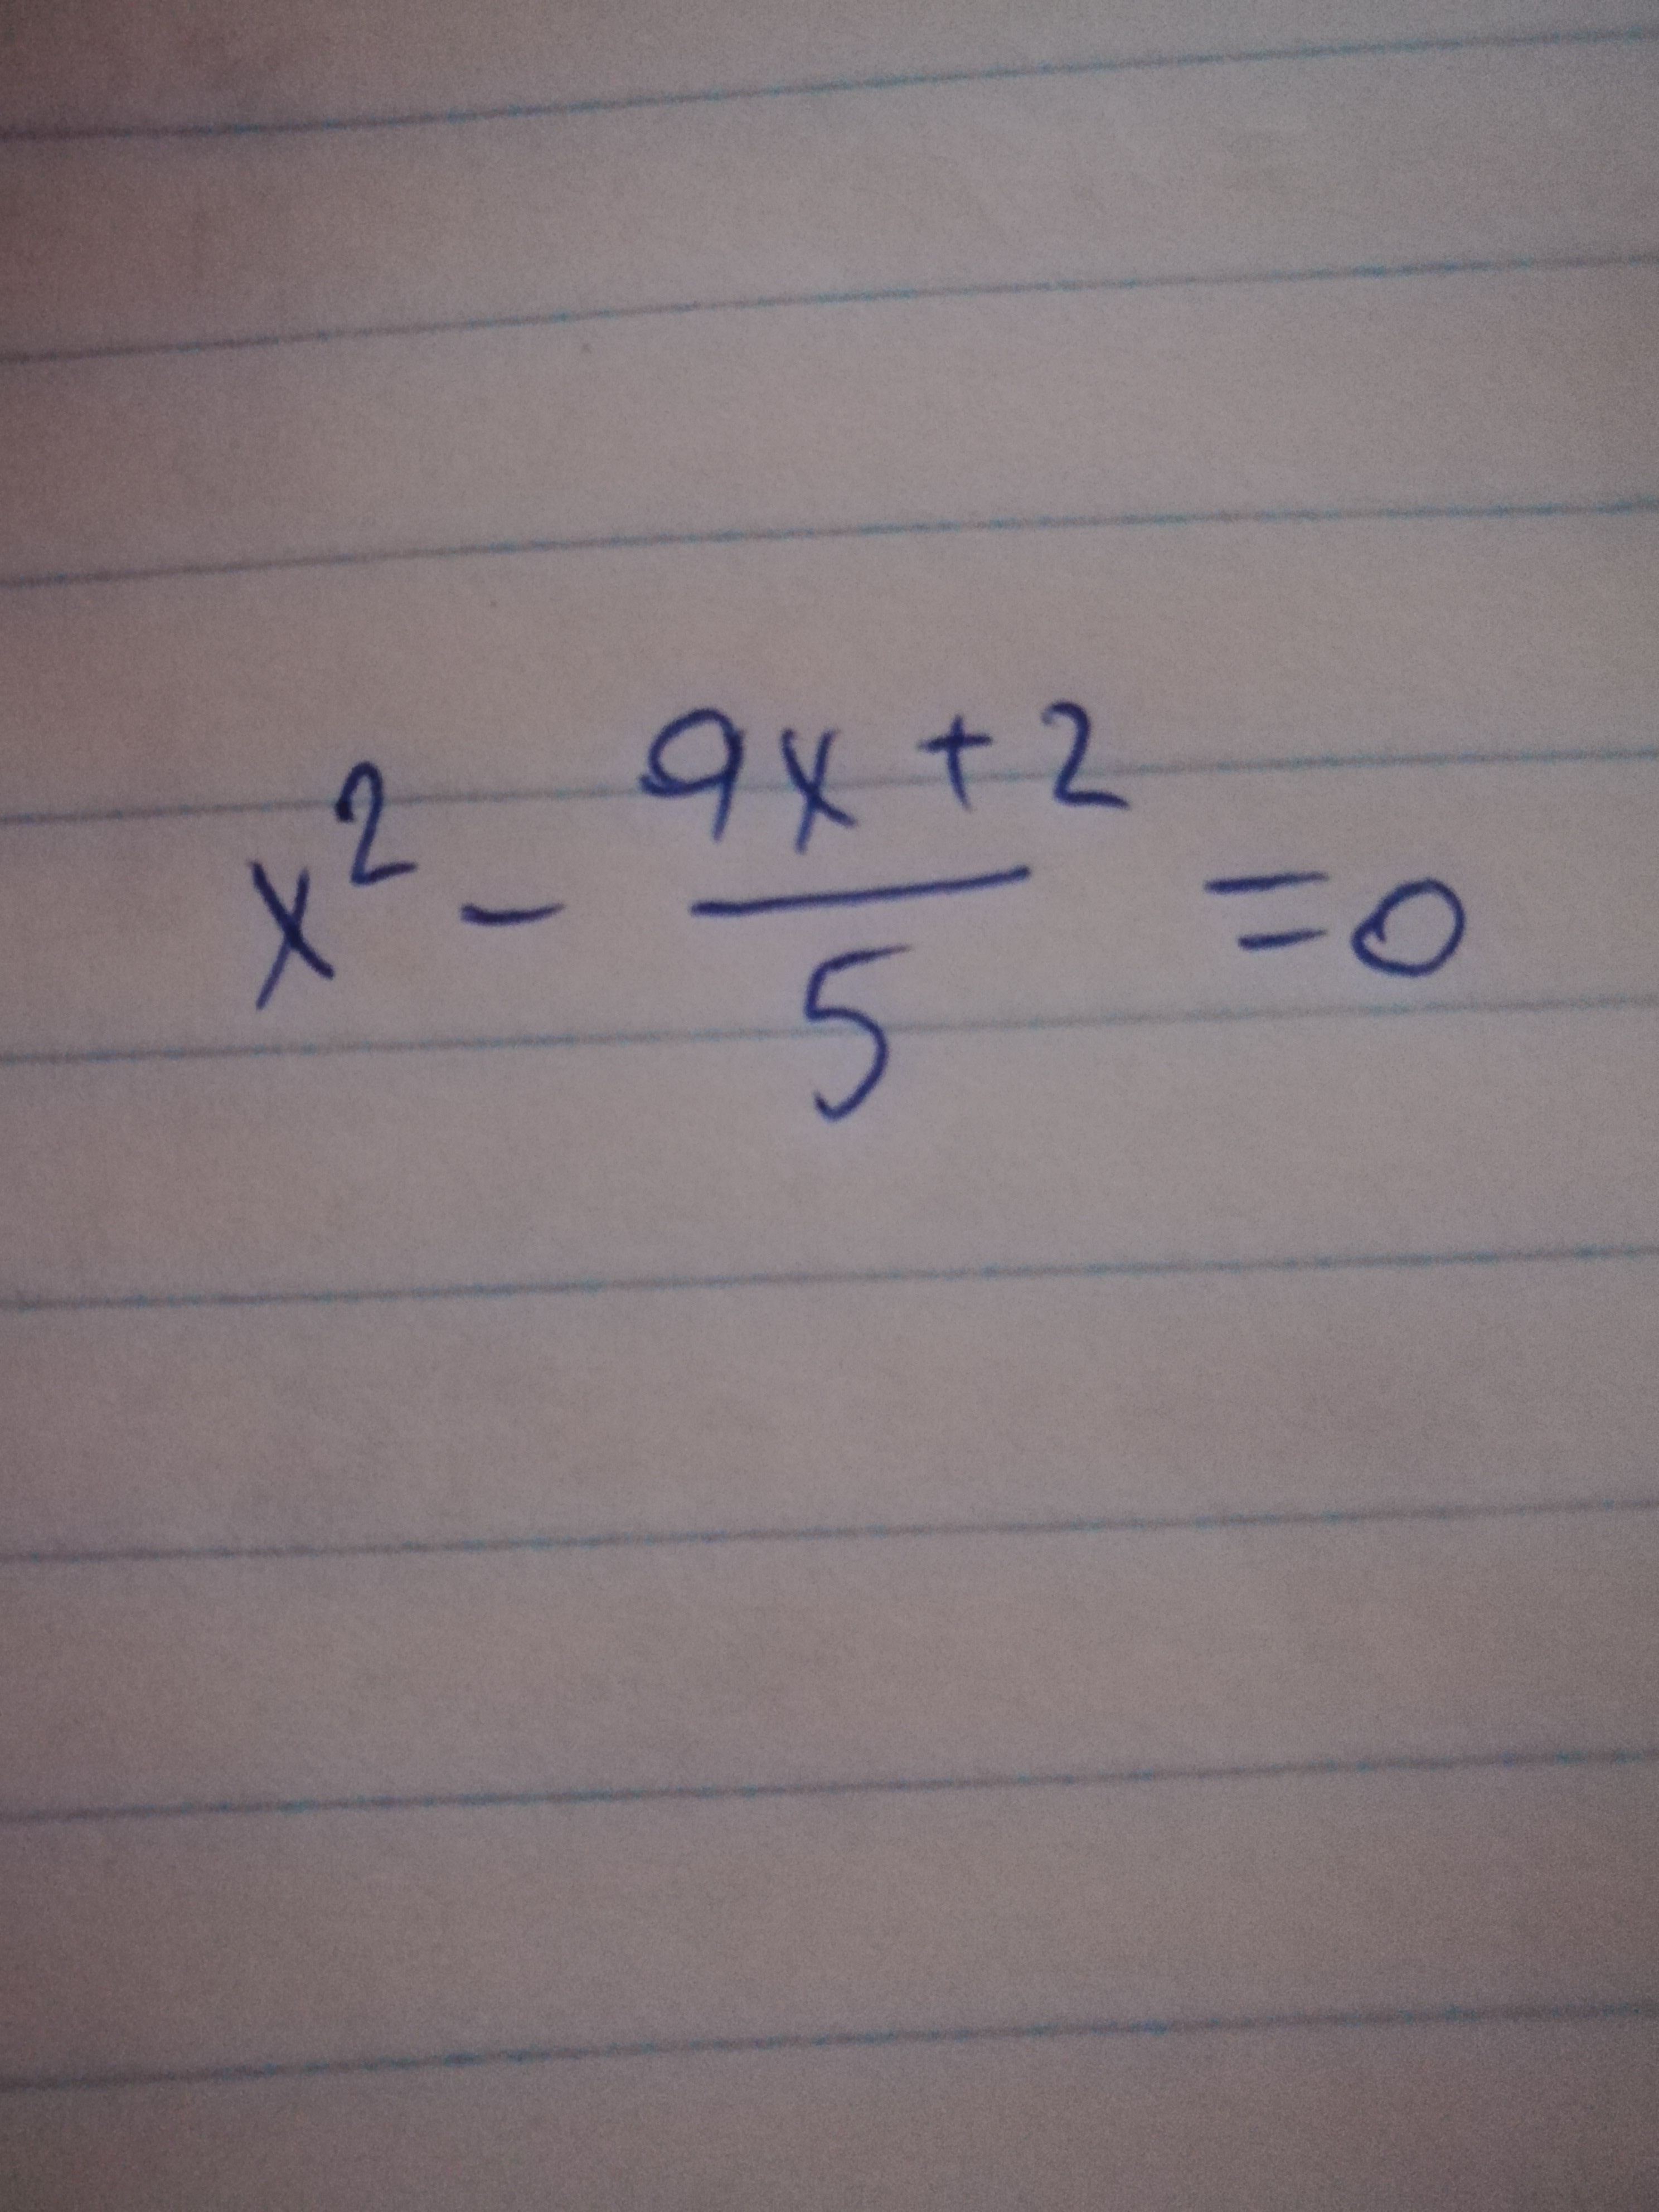 x² - (9x + 2)/5 = 0